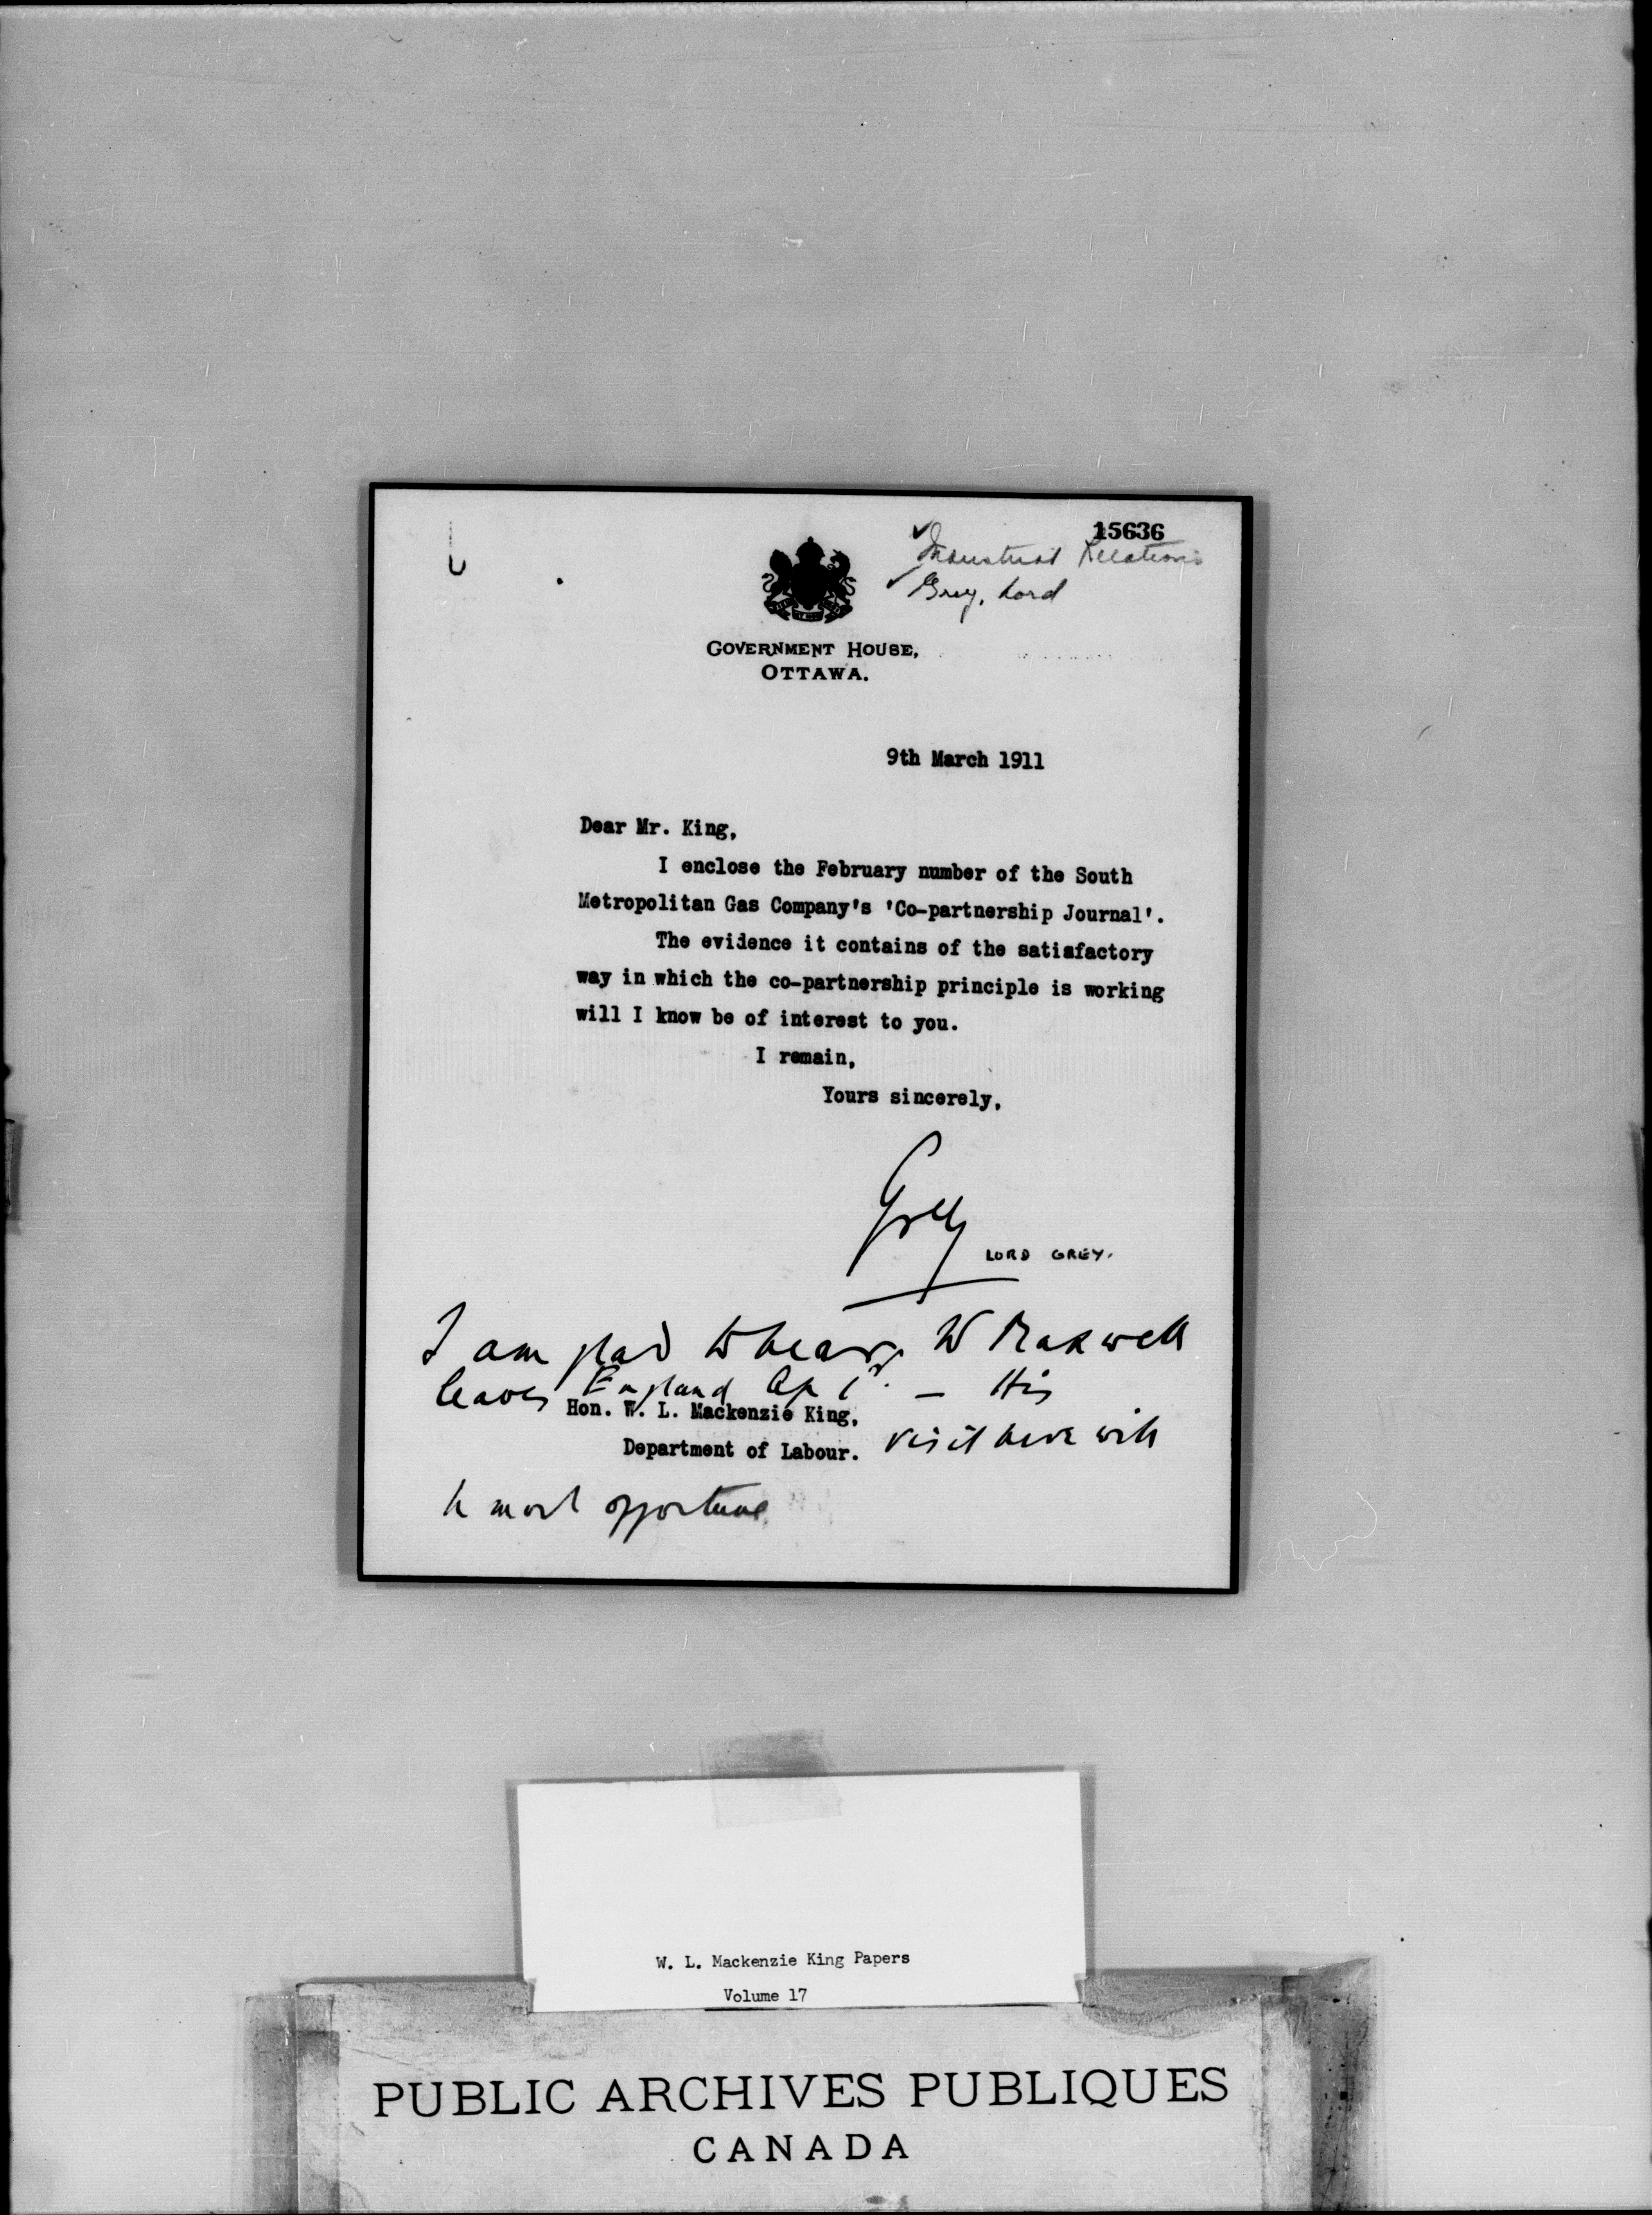 15636
Industrial Relations
Grey, Lord
GOVERNMENT HOUSE,
OTTAWA.
9th March 1911
Dear Mr. King,
I enclose the February number of the South
Metropolitan Gas Company's 'Co-partnership Journal'.
The evidence it contains of the satisfactory
way in which the co-partnership principle is working
will I know be of interest to you.
I remain,
Yours sincerely,
Grey
LORD GREY.
I am glad to hear W Maxwell
leaves England Ap 1st. — His
Hon. W. L. Mackenzie King,
visit here will
Department of Labour.
be most opportune
W. L. Mackenzie King Papers
Volume 17
PUBLIC ARCHIVES PUBLIQUES
CANADA